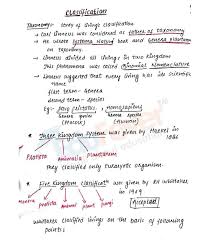 Classification
Taxonomy: study of living's classification
→ Carl Linnaeus was considered as father of taxonomy
→ He wrote Systema Natura book and Genera plantarum
on taxonomy
→ Linnaeus divided all living's in two kingdom
This phenomenon was called Binomial Nomenclature
→ Linnaeus suggested that every living has its scientific
name
first term - Genera
second term - species
Eg: Pavo cristatus, Homosapiens
Genera species Genera species
(Peacock)
→ Three Kingdom System was given by in
1866
Protista Animalia Plantarum
They classified only Eukaryotic organism.
→ Five Kingdom Classificatⁿ was given by RH Whittaker
in 1969
Protista Fungi
Accepted
Whittaker classified livings on the basis of following
points: